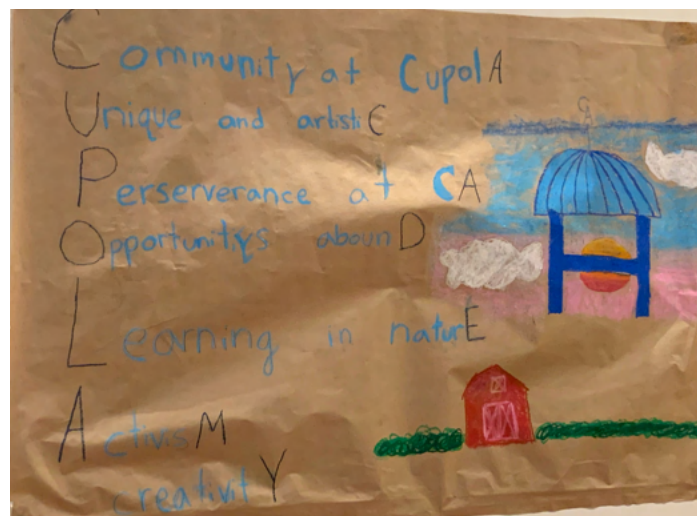 CommunitY at CupolA
Unique and artistiC
Perserverance at CA
Opportunitys abounD
Learning in naturE
ActivisM
creativitY
CA